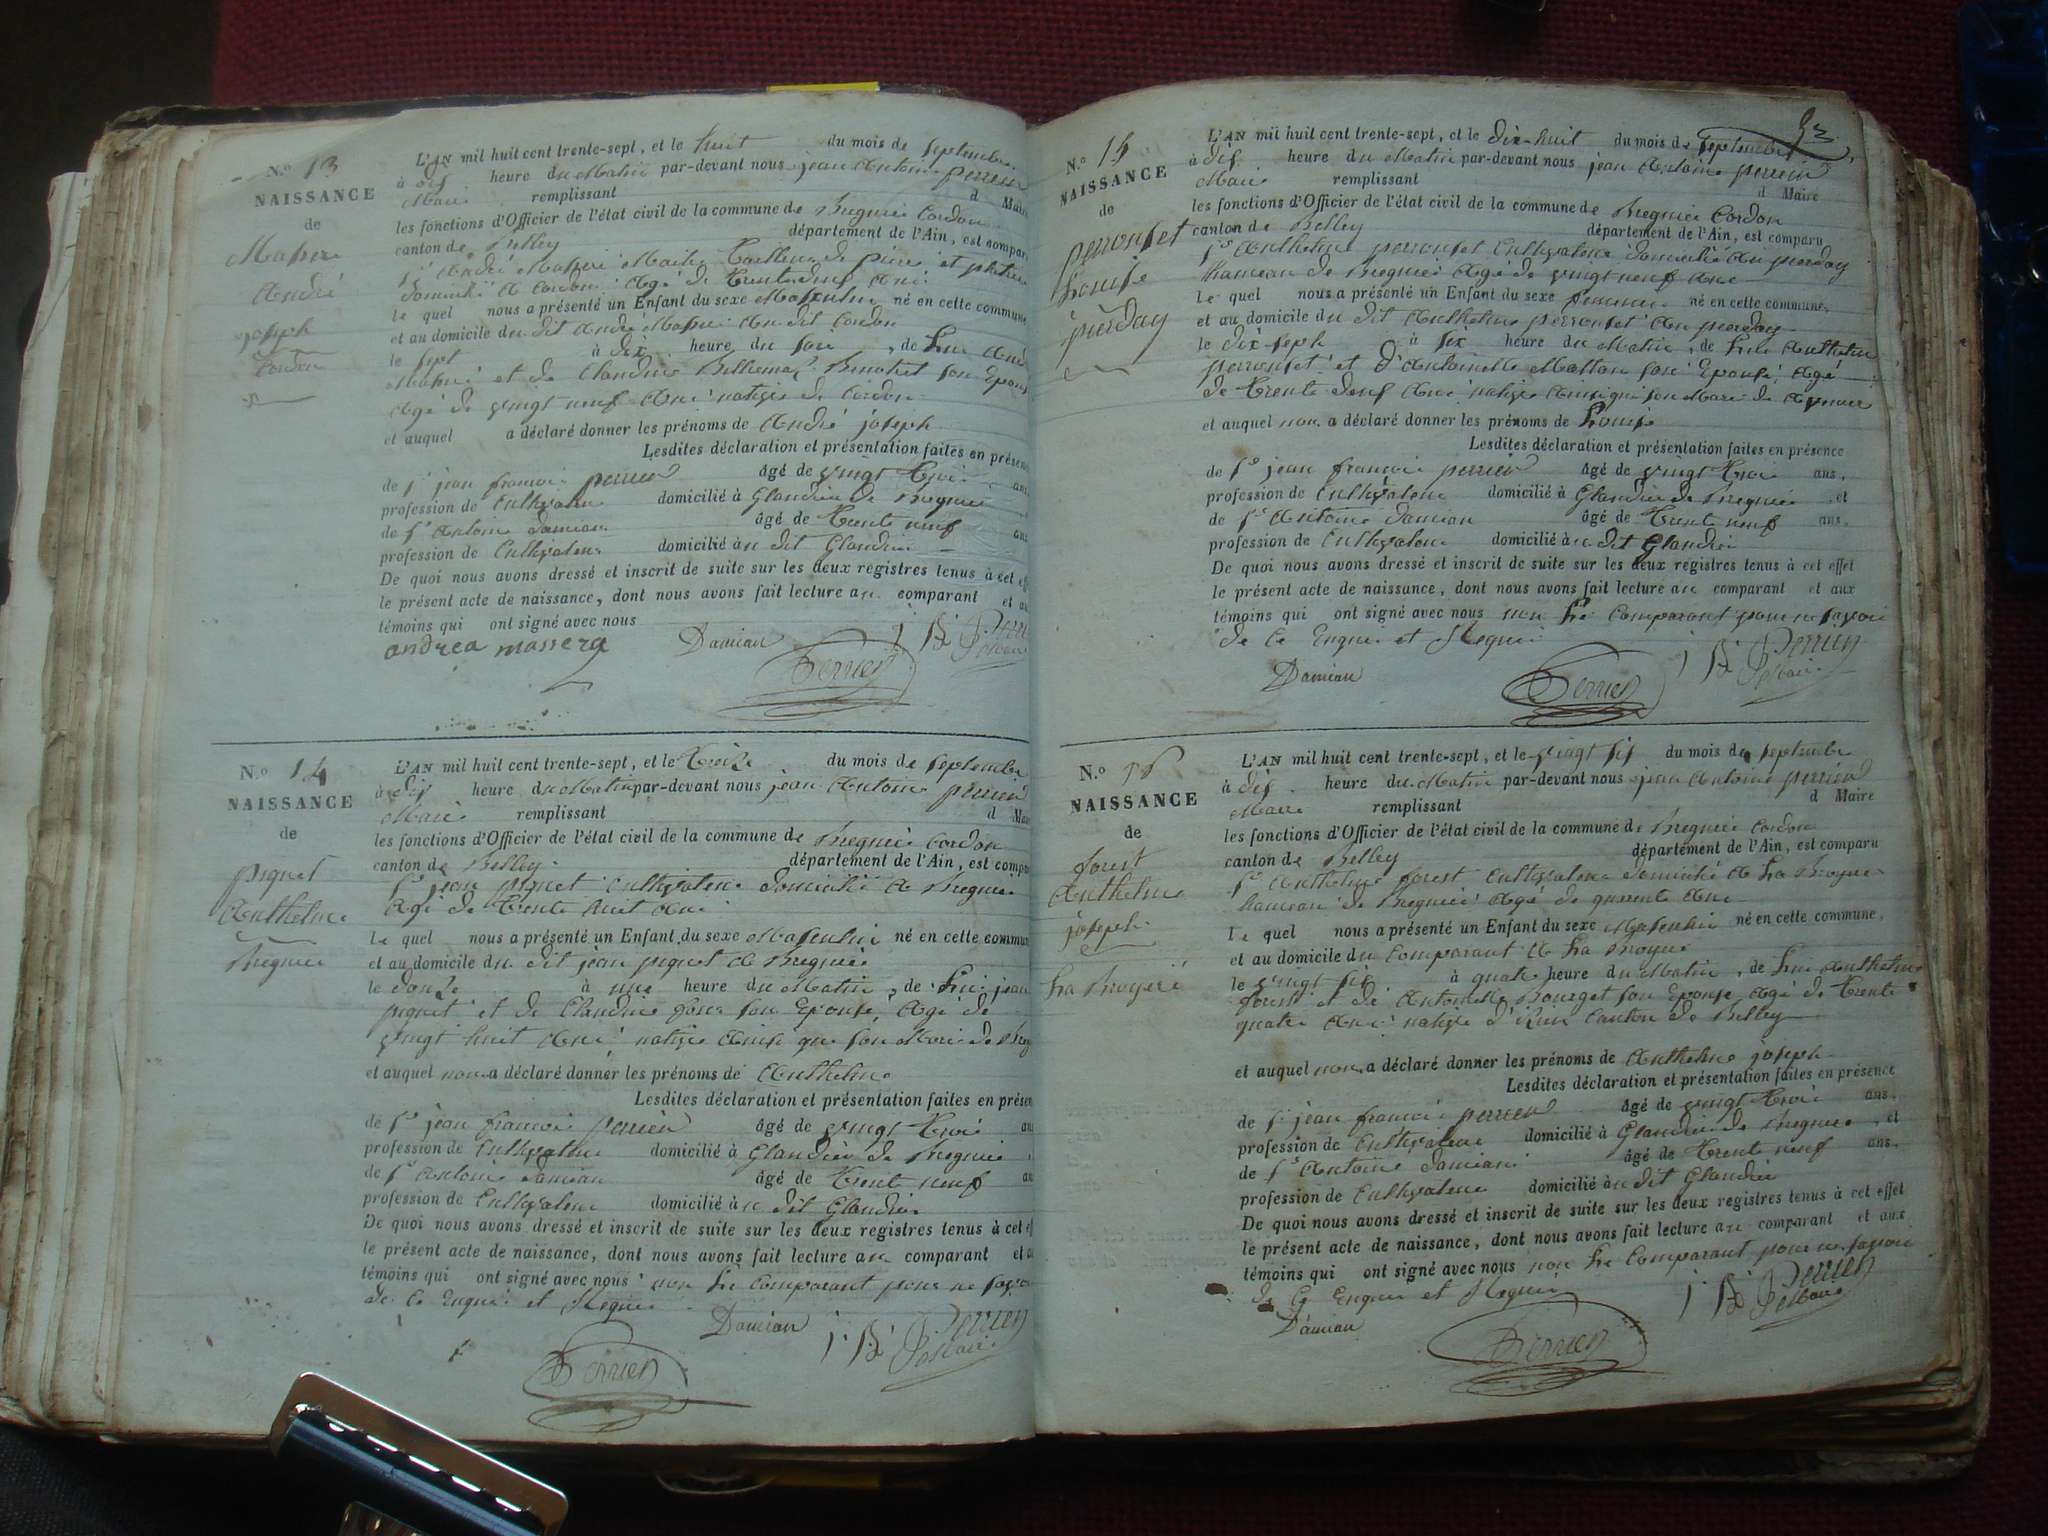 N.º 13
NAISSANCE
de
Massera
André
joseph
Cordon
L'AN mil huit cent trente-sept, et le huit du mois de septembre
à dix heure du Matin par-devant nous jean Antoine perrier
Maire remplissant d Maire
les fonctions d'Officier de l'état civil de la commune de Bregnier Cordon
canton de Belley département de l'Ain, est comparu
domicilié à Cordon Agé de trente deux Ans
le quel nous a présenté un Enfant du sexe Masculin né en cette commune
et au domicile du dit André au dit Cordon
le sept à dix heure du soir, de Lui André
et de Claudine son Epouse
Agé de vingt neuf Ans native de Cordon
et auquel a déclaré donner les prénoms de André joseph
Lesdites déclaration et présentation faites en présence
de sr jean francois perrier âgé de vingt trois ans
profession de Cultivateur domicilié à Glandieu de Bregnier
de sr Antoine Damian âgé de trente neuf ans
profession de Cultivateur domicilié au dit Glandieu
De quoi nous avons dressé et inscrit de suite sur les deux registres tenus à cet effet
le présent acte de naissance, dont nous avons fait lecture au comparant et aux
témoins qui ont signé avec nous
andrea massera Damian Perrier
N.º 14
NAISSANCE
de
piquet
Anthelme
Bregnier
L'AN mil huit cent trente-sept, et le treize du mois de septembre
à dix heure du Matin par-devant nous jean Antoine perrier
Maire remplissant d Maire
les fonctions d'Officier de l'état civil de la commune de Bregnier Cordon
canton de Belley département de l'Ain, est comparu
sr jean piquet Cultivateur domicilié à Bregnier
Agé de trente huit Ans
le quel nous a présenté un Enfant du sexe Masculin né en cette commune
et au domicile du dit jean piquet à Bregnier
le douze à une heure du Matin, de Lui jean
piquet et de Claudine son Epouse, Agé de
vingt huit Ans native Ainsi que son Mari de
et auquel nous a déclaré donner les prénoms de Anthelme
Lesdites déclaration et présentation faites en présence
de sr jean francois perrier âgé de vingt trois ans
profession de Cultivateur domicilié à Glandieu de Bregnier
de sr Antoine Damian âgé de trente neuf ans
profession de Cultivateur domicilié au dit Glandieu
De quoi nous avons dressé et inscrit de suite sur les deux registres tenus à cet effet
le présent acte de naissance, dont nous avons fait lecture au comparant et aux
témoins qui ont signé avec nous non Le Comparant pour ne savoir
de Ce Enquis et Requis
Damian Perrier
Perrier
N.º 15
NAISSANCE
de
perrousset
Louise
pierday
L'AN mil huit cent trente-sept, et le dix-huit du mois de septembre
à dix heure du Matin par-devant nous jean Antoine perrier
Maire remplissant d Maire
les fonctions d'Officier de l'état civil de la commune de Bregnier Cordon
canton de Belley département de l'Ain, est comparu
sr Anthelme perrousset Cultivateur domicilié au pierday
hameau de Bregnier Agé de vingt neuf Ans
le quel nous a présenté un Enfant du sexe feminin né en cette commune,
et au domicile du dit Anthelme perrousset Au pierday
le dix-sept à six heure du Matin, de Lui Anthelme
perrousset et d'Antoinette son Epouse, Agé
de trente deux Ans native Ainsi que son Mari de
et auquel nous a déclaré donner les prénoms de Louise
Lesdites déclaration et présentation faites en présence
de sr jean francois perrier âgé de vingt trois ans,
profession de Cultivateur domicilié à Glandieu de Bregnier, et
de sr Antoine Damian âgé de trente neuf ans,
profession de Cultivateur domicilié au dit Glandieu
De quoi nous avons dressé et inscrit de suite sur les deux registres tenus à cet effet
le présent acte de naissance, dont nous avons fait lecture au comparant et aux
témoins qui ont signé avec nous non Le Comparant pour ne savoir
de Ce Enquis et Requis
Damian Perrier Perrier
N.º 16
NAISSANCE
de
forest
Anthelme
joseph
La Bruyere
L'AN mil huit cent trente-sept, et le vingt six du mois de septembre
à dix heure du Matin par-devant nous jean Antoine perrier
Maire remplissant d Maire
les fonctions d'Officier de l'état civil de la commune de Bregnier Cordon
canton de Belley département de l'Ain, est comparu
sr Anthelme forest Cultivateur domicilié à La Bruyere
hameau de Bregnier Agé de quarente Ans
le quel nous a présenté un Enfant du sexe Masculin né en cette commune,
et au domicile du Comparant à La Bruyere
le vingt six à quatre heure du Matin, de Lui Anthelme
forest et de Antoinette son Epouse Agé de trente
quatre Ans native Canton de Belley
et auquel nous a déclaré donner les prénoms de Anthelme joseph
Lesdites déclaration et présentation faites en présence
de sr jean francois perrier âgé de vingt trois ans,
profession de Cultivateur domicilié à Glandieu de Bregnier, et
de sr Antoine Damian âgé de trente neuf ans,
profession de Cultivateur domicilié au dit Glandieu
De quoi nous avons dressé et inscrit de suite sur les deux registres tenus à cet effet
le présent acte de naissance, dont nous avons fait lecture au comparant et aux
témoins qui ont signé avec nous non Le Comparant pour ne savoir
de Ce Enquis et Requis
Damian Perrier Perrier